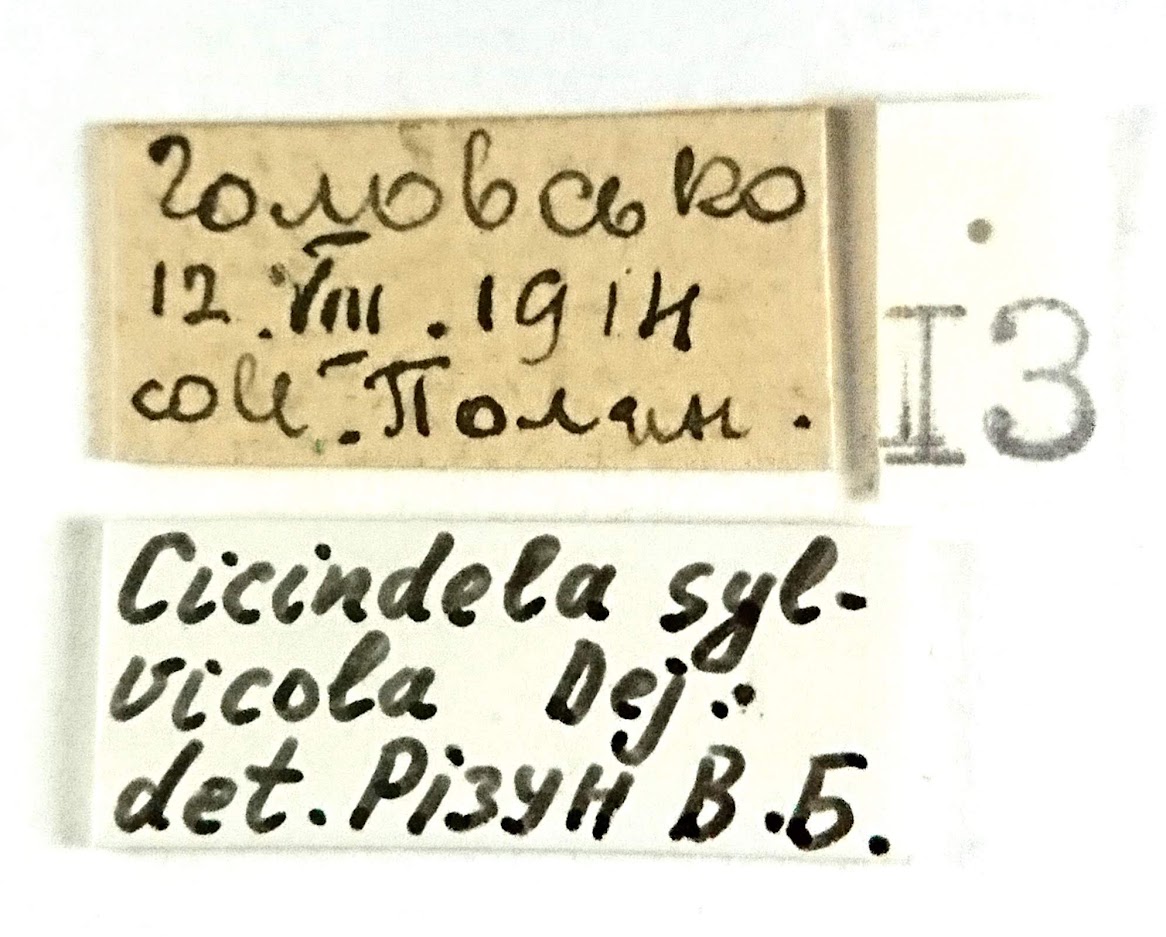 Головсько
12.VIII.1914
coll. Полян.
I3
Cicindela syl-
vicola Dej.
det. Різун В.Б.